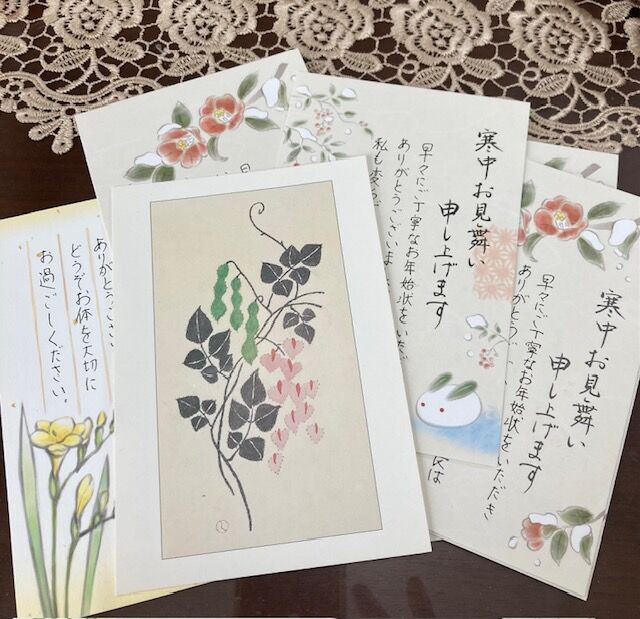 寒中お見舞い
申し上げます
早々にご丁寧なお年始状をいただき
ありがとう
寒中お見舞い
申し上げます
早々にご丁寧なお年始状をいただ
ありがとうございま
私も変らず
ありがとうござい
どうぞお体を大切に
お過ごしください。